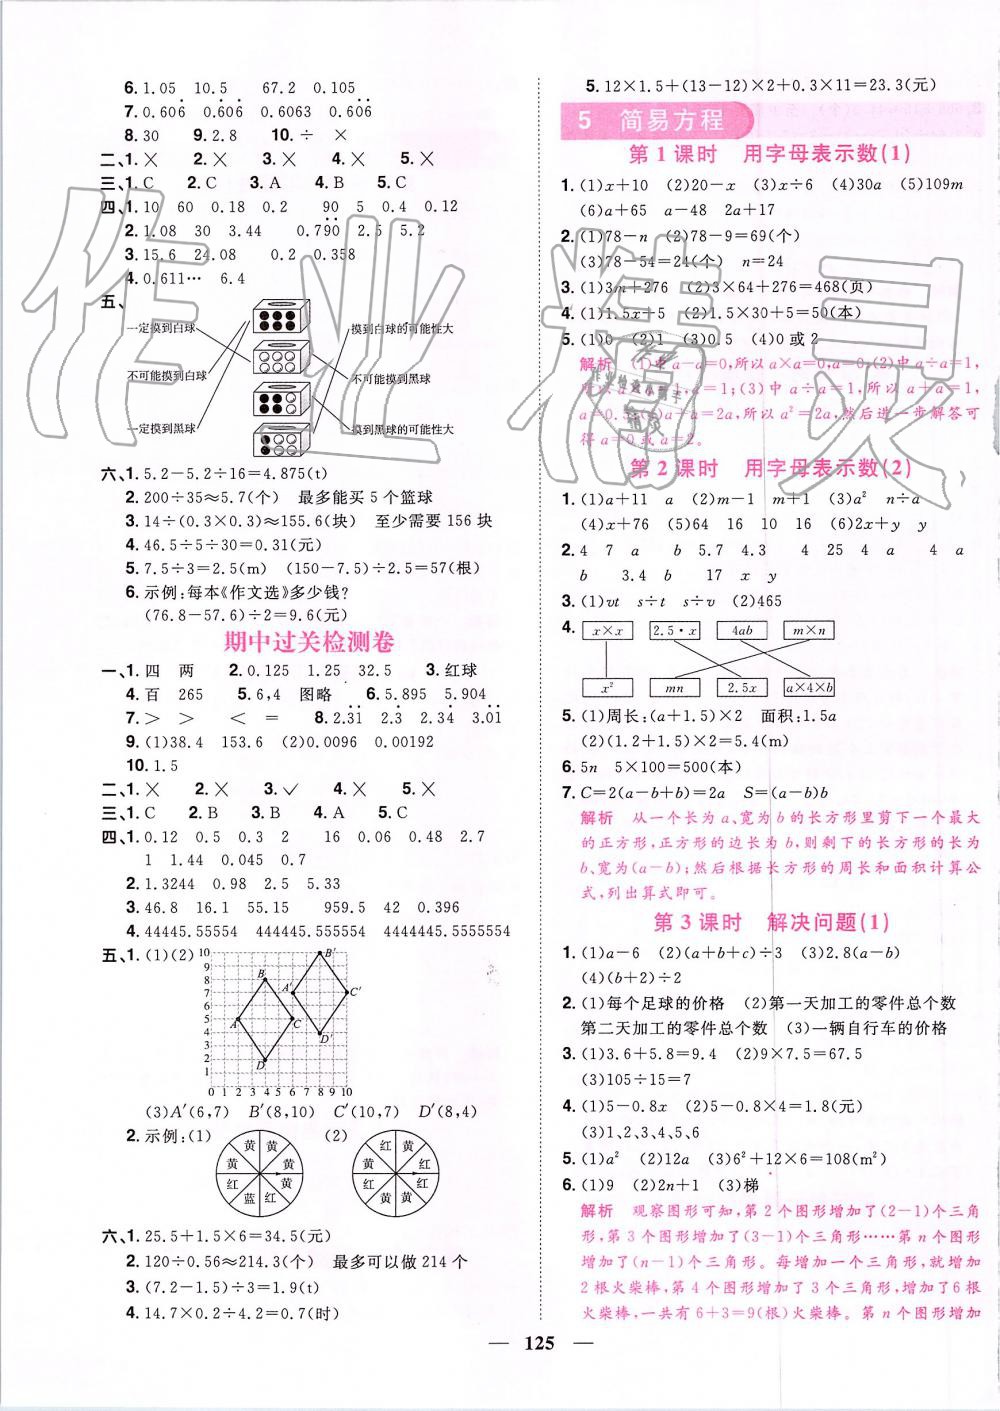 6. 1.05 10.5 67.2 0.105
7. 0.606̇ 0.6̇06̇ 0.6063 0.60̇6̇
8. 30 9. 2.8 10. ÷ ×
二、1. × 2. × 3. × 4. × 5. ×
三、1. C 2. C 3. A 4. B 5. C
四、1. 10 60 0.18 0.2 90 5 0.4 0.12
2. 1.08 30 3.44 0.79̇0̇ 2.5 5.2
3. 15.6 24.08 0.2 0.358
4. 0.611… 6.4
五、
一定摸到白球
不可能摸到白球
一定摸到黑球
摸到白球的可能性大
不可能摸到黑球
摸到黑球的可能性大
六、1. 5.2−5.2÷16=4.875(t)
2. 200÷35≈5.7(个) 最多能买 5 个篮球
3. 14÷(0.3×0.3)≈155.6(块) 至少需要 156 块
4. 46.5÷5÷30=0.31(元)
5. 7.5÷3=2.5(m) (150−7.5)÷2.5=57(根)
6. 示例:每本《作文选》多少钱?
(76.8−57.6)÷2=9.6(元)
期中过关检测卷
一、1. 四 两 2. 0.125 1.25 32.5 3. 红球
4. 百 265 5. 6,4 图略 6. 5.895 5.904
7. > > < = 8. 2.3̇1̇ 2.3̇ 2.3̇4̇ 3.0̇1̇
9. (1)38.4 153.6 (2)0.0096 0.00192
10. 1.5
二、1. × 2. × 3. √ 4. × 5. ×
三、1. C 2. B 3. B 4. A 5. C
四、1. 0.12 0.5 0.3 2 16 0.06 0.48 2.7
1 1.44 0.045 0.7
2. 1.3244 0.98 2.5 5.33
3. 46.8 16.1 55.15 959.5 42 0.396
4. 44445.55554 444445.555554 4444445.5555554
五、1. (1)(2)
10
9
8
7
6
5
4
3
2
1
0 1 2 3 4 5 6 7 8 9 10
A B C D A′ B′ C′ D′
(3)A′(6,7) B′(8,10) C′(10,7) D′(8,4)
2. 示例:(1) (2)
黄 黄 黄 黄 红 蓝 红 黄
红 黄 黄 红 红 黄 黄 红
六、1. 25.5+1.5×6=34.5(元)
2. 120÷0.56≈214.3(个) 最多可以做 214 个
3. (7.2−1.5)÷3=1.9(t)
4. 14.7×0.2÷4.2=0.7(时)
5. 12×1.5+(13−12)×2+0.3×11=23.3(元)
5 简易方程
第 1 课时 用字母表示数(1)
1. (1)x+10 (2)20−x (3)x÷6 (4)30a (5)109m
(6)a+65 a−48 2a+17
2. (1)78−n (2)78−9=69(个)
(3)78−54=24(个) n=24
3. (1)3m+276 (2)3×64+276=468(页)
4. (1)1.5x+5 (2)1.5×30+5=50(本)
5. (1)0 (2)1 (3)0.5 (4)0 或 2
解析 (1)中 a−a=0,所以 a×a=0,a=0;(2)中 a÷a=1,
所以 a=1;(3)中 a÷a=1,所以 a+a=1,
a=0.5;(4)a+a=2a,所以 a²=2a,然后进一步解答可
得 a=0 或 a=2。
第 2 课时 用字母表示数(2)
1. (1)a+11 a (2)m−1 m+1 (3)a² n÷a
(4)x+76 (5)64 16 10 16 (6)2x+y y
2. 4 7 a b 5.7 4.3 4 25 4 a 4 a
b 3.4 b 17 x y
3. (1)vt s÷t s÷v (2)465
4. x×x 2.5·x 4ab m×n
x² mn 2.5x a×4×b
5. (1)周长:(a+1.5)×2 面积:1.5a
(2)(1.2+1.5)×2=5.4(m)
6. 5n 5×100=500(本)
7. C=2(a−b+b)=2a S=(a−b)b
解析 从一个长为 a、宽为 b 的长方形里剪下一个最大
的正方形,正方形的边长为 b,则剩下的长方形的长为
b、宽为(a−b);然后根据长方形的周长和面积计算公
式,列出算式即可。
第 3 课时 解决问题(1)
1. (1)a−6 (2)(a+b+c)÷3 (3)2.8(a−b)
(4)(b+2)÷2
2. (1)每个足球的价格 (2)第一天加工的零件总个数
第二天加工的零件总个数 (3)一辆自行车的价格
3. (1)3.6+5.8=9.4 (2)9×7.5=67.5
(3)105÷15=7
4. (1)5−0.8x (2)5−0.8×4=1.8(元)
(3)1、2、3、4、5、6
5. (1)a² (2)12a (3)6²+12×6=108(m²)
6. (1)9 (2)2n+1 (3)梯
解析 观察图形可知,第 2 个图形增加了(2−1)个三角
形,第 3 个图形增加了(3−1)个三角形……第 n 个图形
增加了(n−1)个三角形。每增加一个三角形,就增加
2 根火柴棒,第 4 个图形增加了 3 个三角形,增加了6 根
火柴棒,一共有 6+3=9(根)火柴棒。第 n 个图形增加
— 125 —
作业精灵